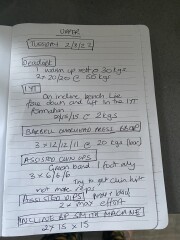 UPPER
TUESDAY 2/8/22
Deadlift
1 warm up set @ 30kgs
2x 20/20 @ 50kgs
IYT
On incline bench lie
face down and lift in the IYT
formation
@ 2kgs
BARBELL OVERHEAD PRESS
3x12/12/11 @ 20kgs (bar)
ASSISTED CHIN UPS
Green band 1 foot only
3x6/6/6
Try to get chin higher
not more reps
ASSISTED DIPS
2x max effort
INCLINE BP SMITH MACHINE
2x 15 x 15